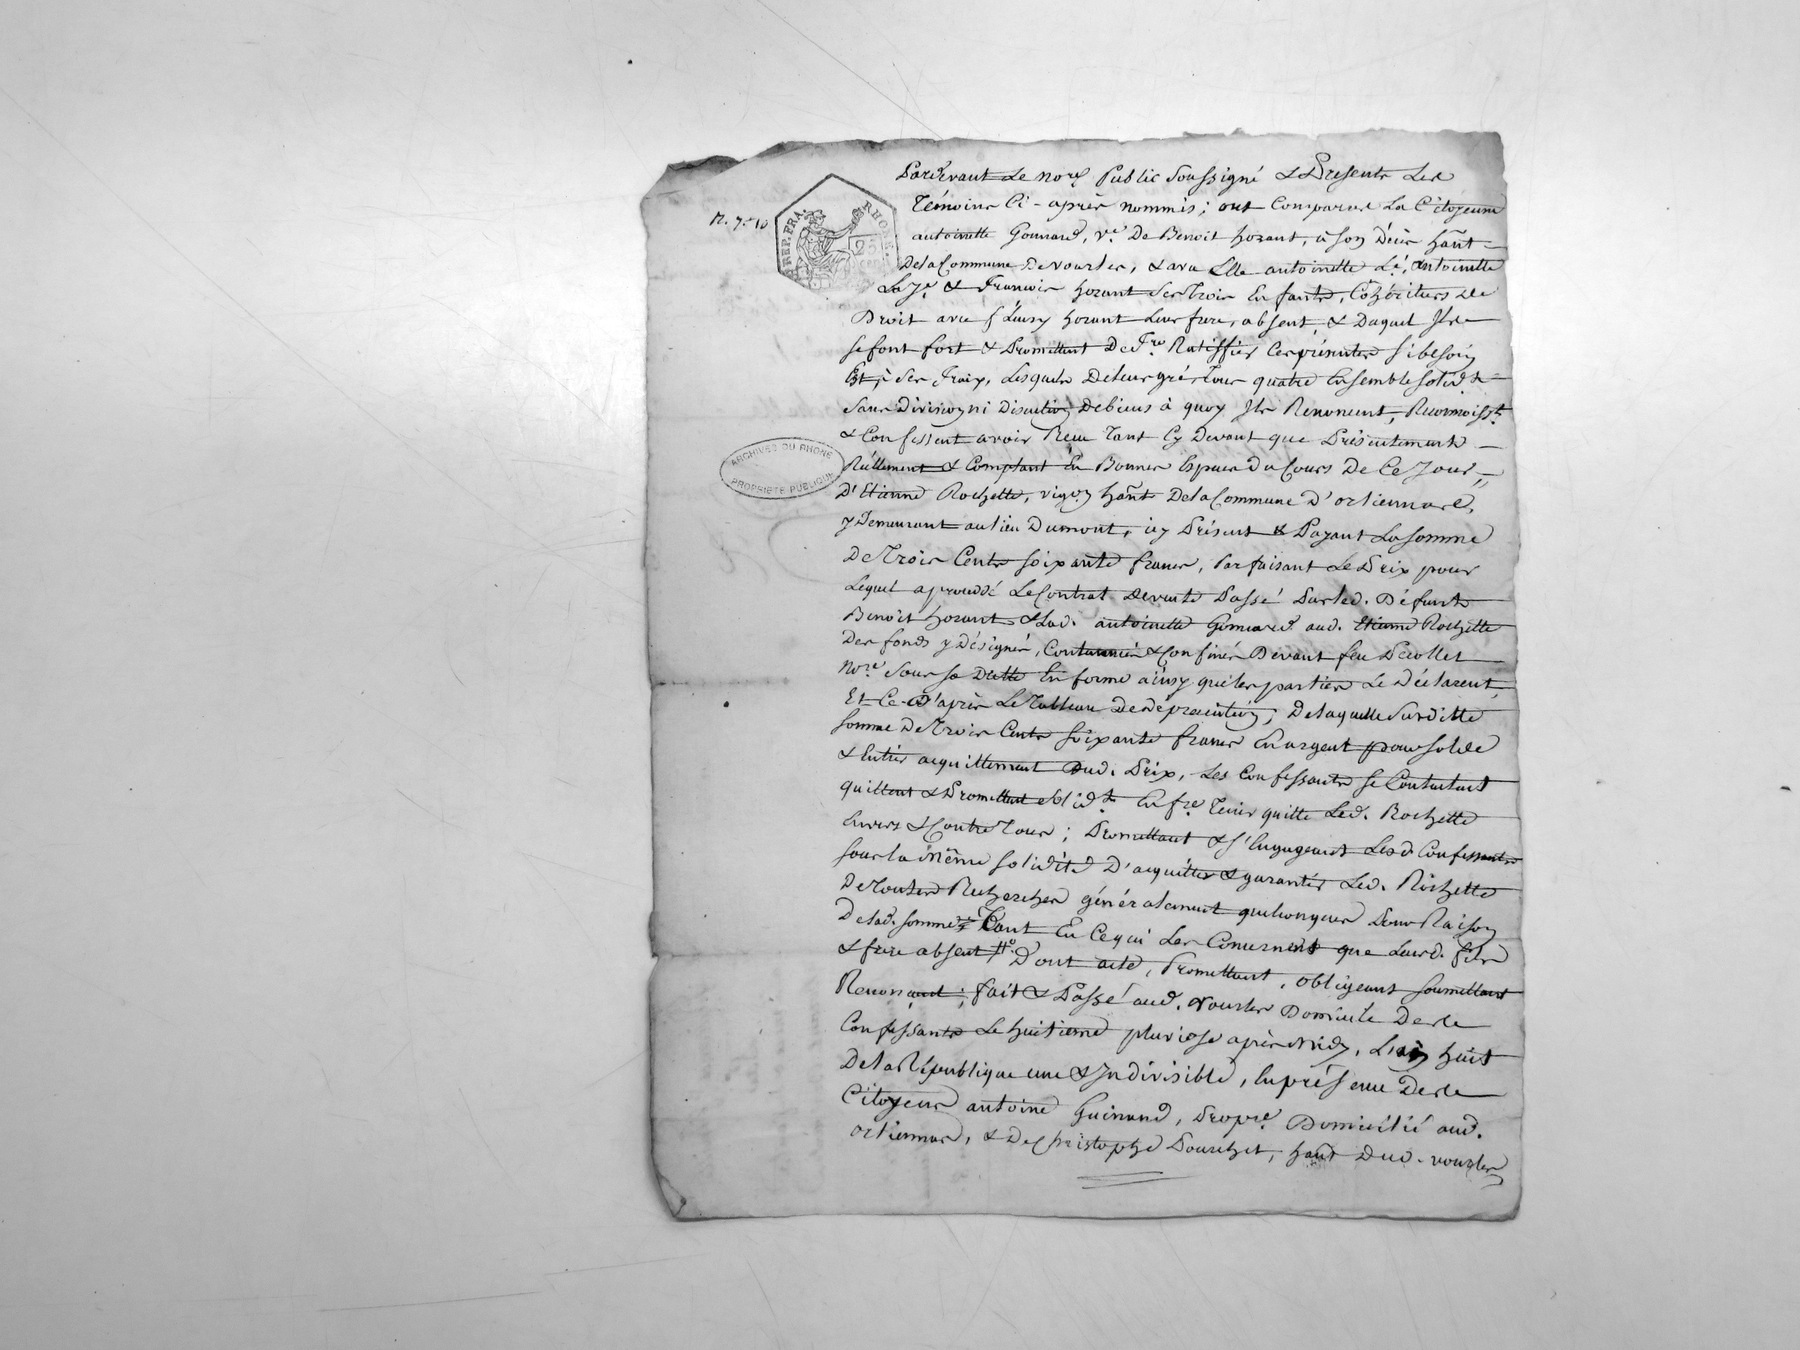 Pardevant Le nore Public Soussigné & Presents Les
Témoins Ci-après nommés; ont Comparus La Citoyenne
antoinette Gonnard, ve. De Benoit hozant, à son Décès hant
De la Commune De vourles, & avec Elle antoinette L'é, antoinette
La Je. & Francois hozant Ses Trois Enfants, Cohéritiers De
Droit avec hozant Leur frere, absent, & Duquel Ils
se font fort & Promettent De Fre. Ratiffier Ces présentes si besoin
Est, à Ses Fraix, Lesquels De leur gré Tous quatre Ensemble solidt
Sans Division ni Discution De biens à quoy Ils Renoncent, Reconnoisst.
& Confessent avoir Reçu Tant Cy Devant que Présentement
Réellement & Comptant En Bonnes Especes Du Cours De Ce Jour,
D'Etienne Rochette, vigon hant De la Commune D'orliennard,
y Demeurant au lieu Dumont, icy Présent & Payant La somme
De Trois Cents soixante francs, Parfaisant Le Prix pour
Lequel a procédé Le Contrat De vente Passé Par Led. Défunt
Benoit hozant & Lad. antoinette Gonnard aud. Etienne Rochette
Des fonds y Désignés, & Confinés Devant feu Decollet
Nore. Sous sa Datte En forme ainsy que les parties Le Déclarent,
Et Ce D'après Le Tableau De Dépréciation; De laquelle Surditte
somme De Trois Cents soixante francs En argent pour solde
& Entier acquittement Dud. Prix, Les Confessants se Contentent
quittent & Promettent solidt En fre. Tenir quitte Led. Rochette
Envers & Contre Tous; Promettant & s'Engageant Lesd. Confessants
sous la même solidité D'acquitter & garantir Led. Rochette
De Toutes Recherches généralement quelconques Pour Raison
De lad. somme Tant En Ce qui Les Concernent que Leurd. fils
& frere absent Dont acte, Promettant, obligeant soumettant
Renonçant; fait & Passé aud. vourles Domicile Des
Confessants Le huitieme pluviose après Midy, L'an huit
De la République une & Indivisible, En présence Des
Citoyens antoine Guinand, Propre. Domicilié aud.
orliennard, & De Christophe Pourchet, hant Dud. vourles
N. 7. 10
REP. FRA.
RHONE
ARCHIVES DU RHONE
PROPRIETE PUBLIQUE